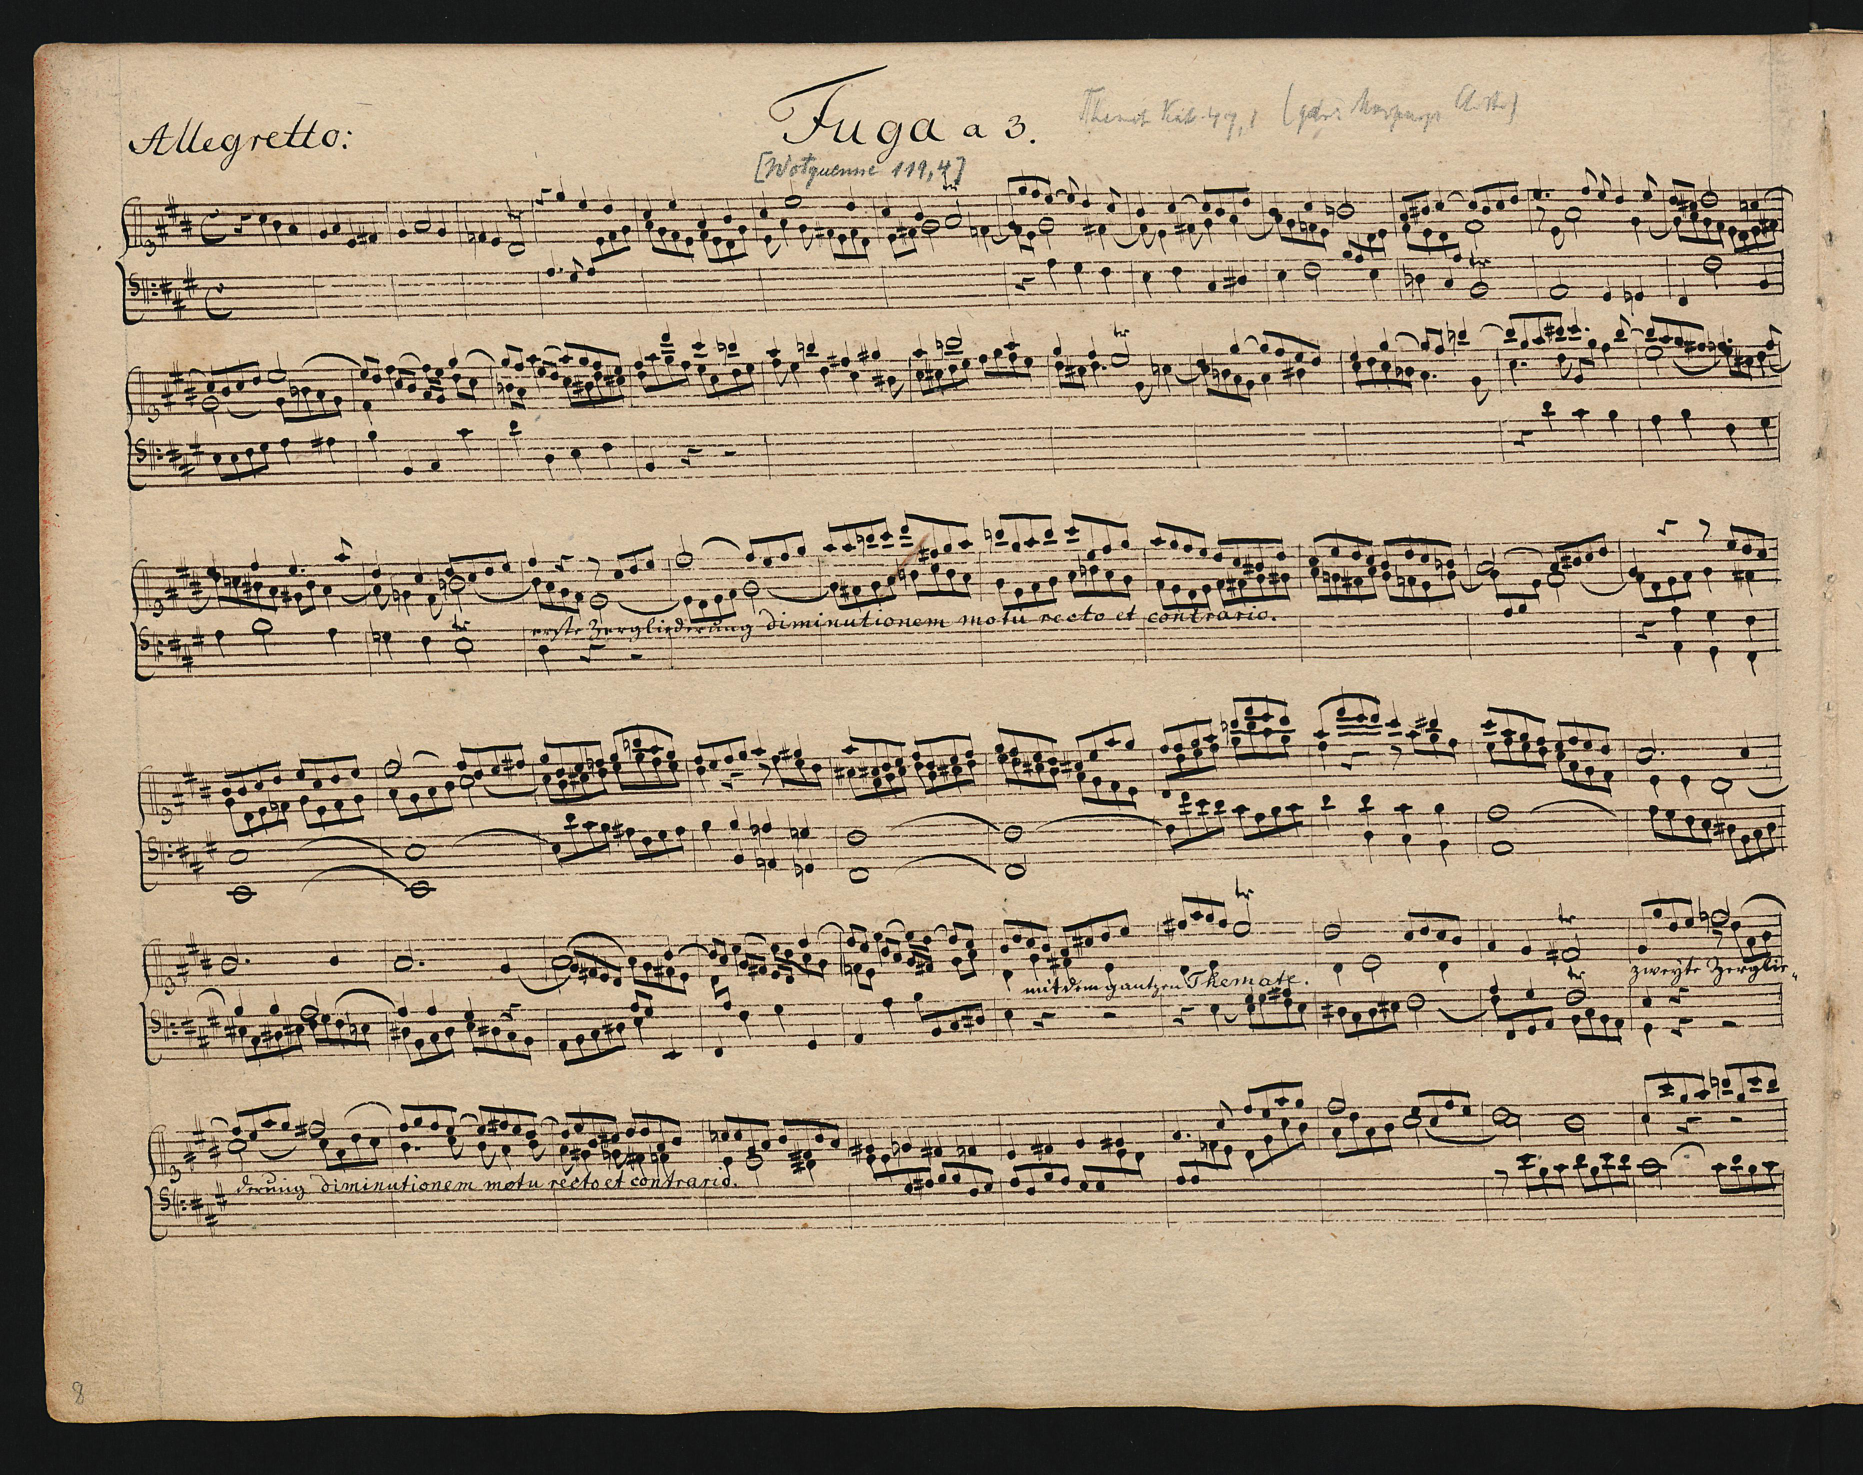 Allegretto:
Fuga a 3.
Themat Kat. 49,1 (gedr:
[Wotquenne 119,4]
erste Zergliederung diminutionem motu recto et contrario.
mit dem gantzen Themate.
zweyte Zerglie-
derung diminutionem motu recto et contrario.
8